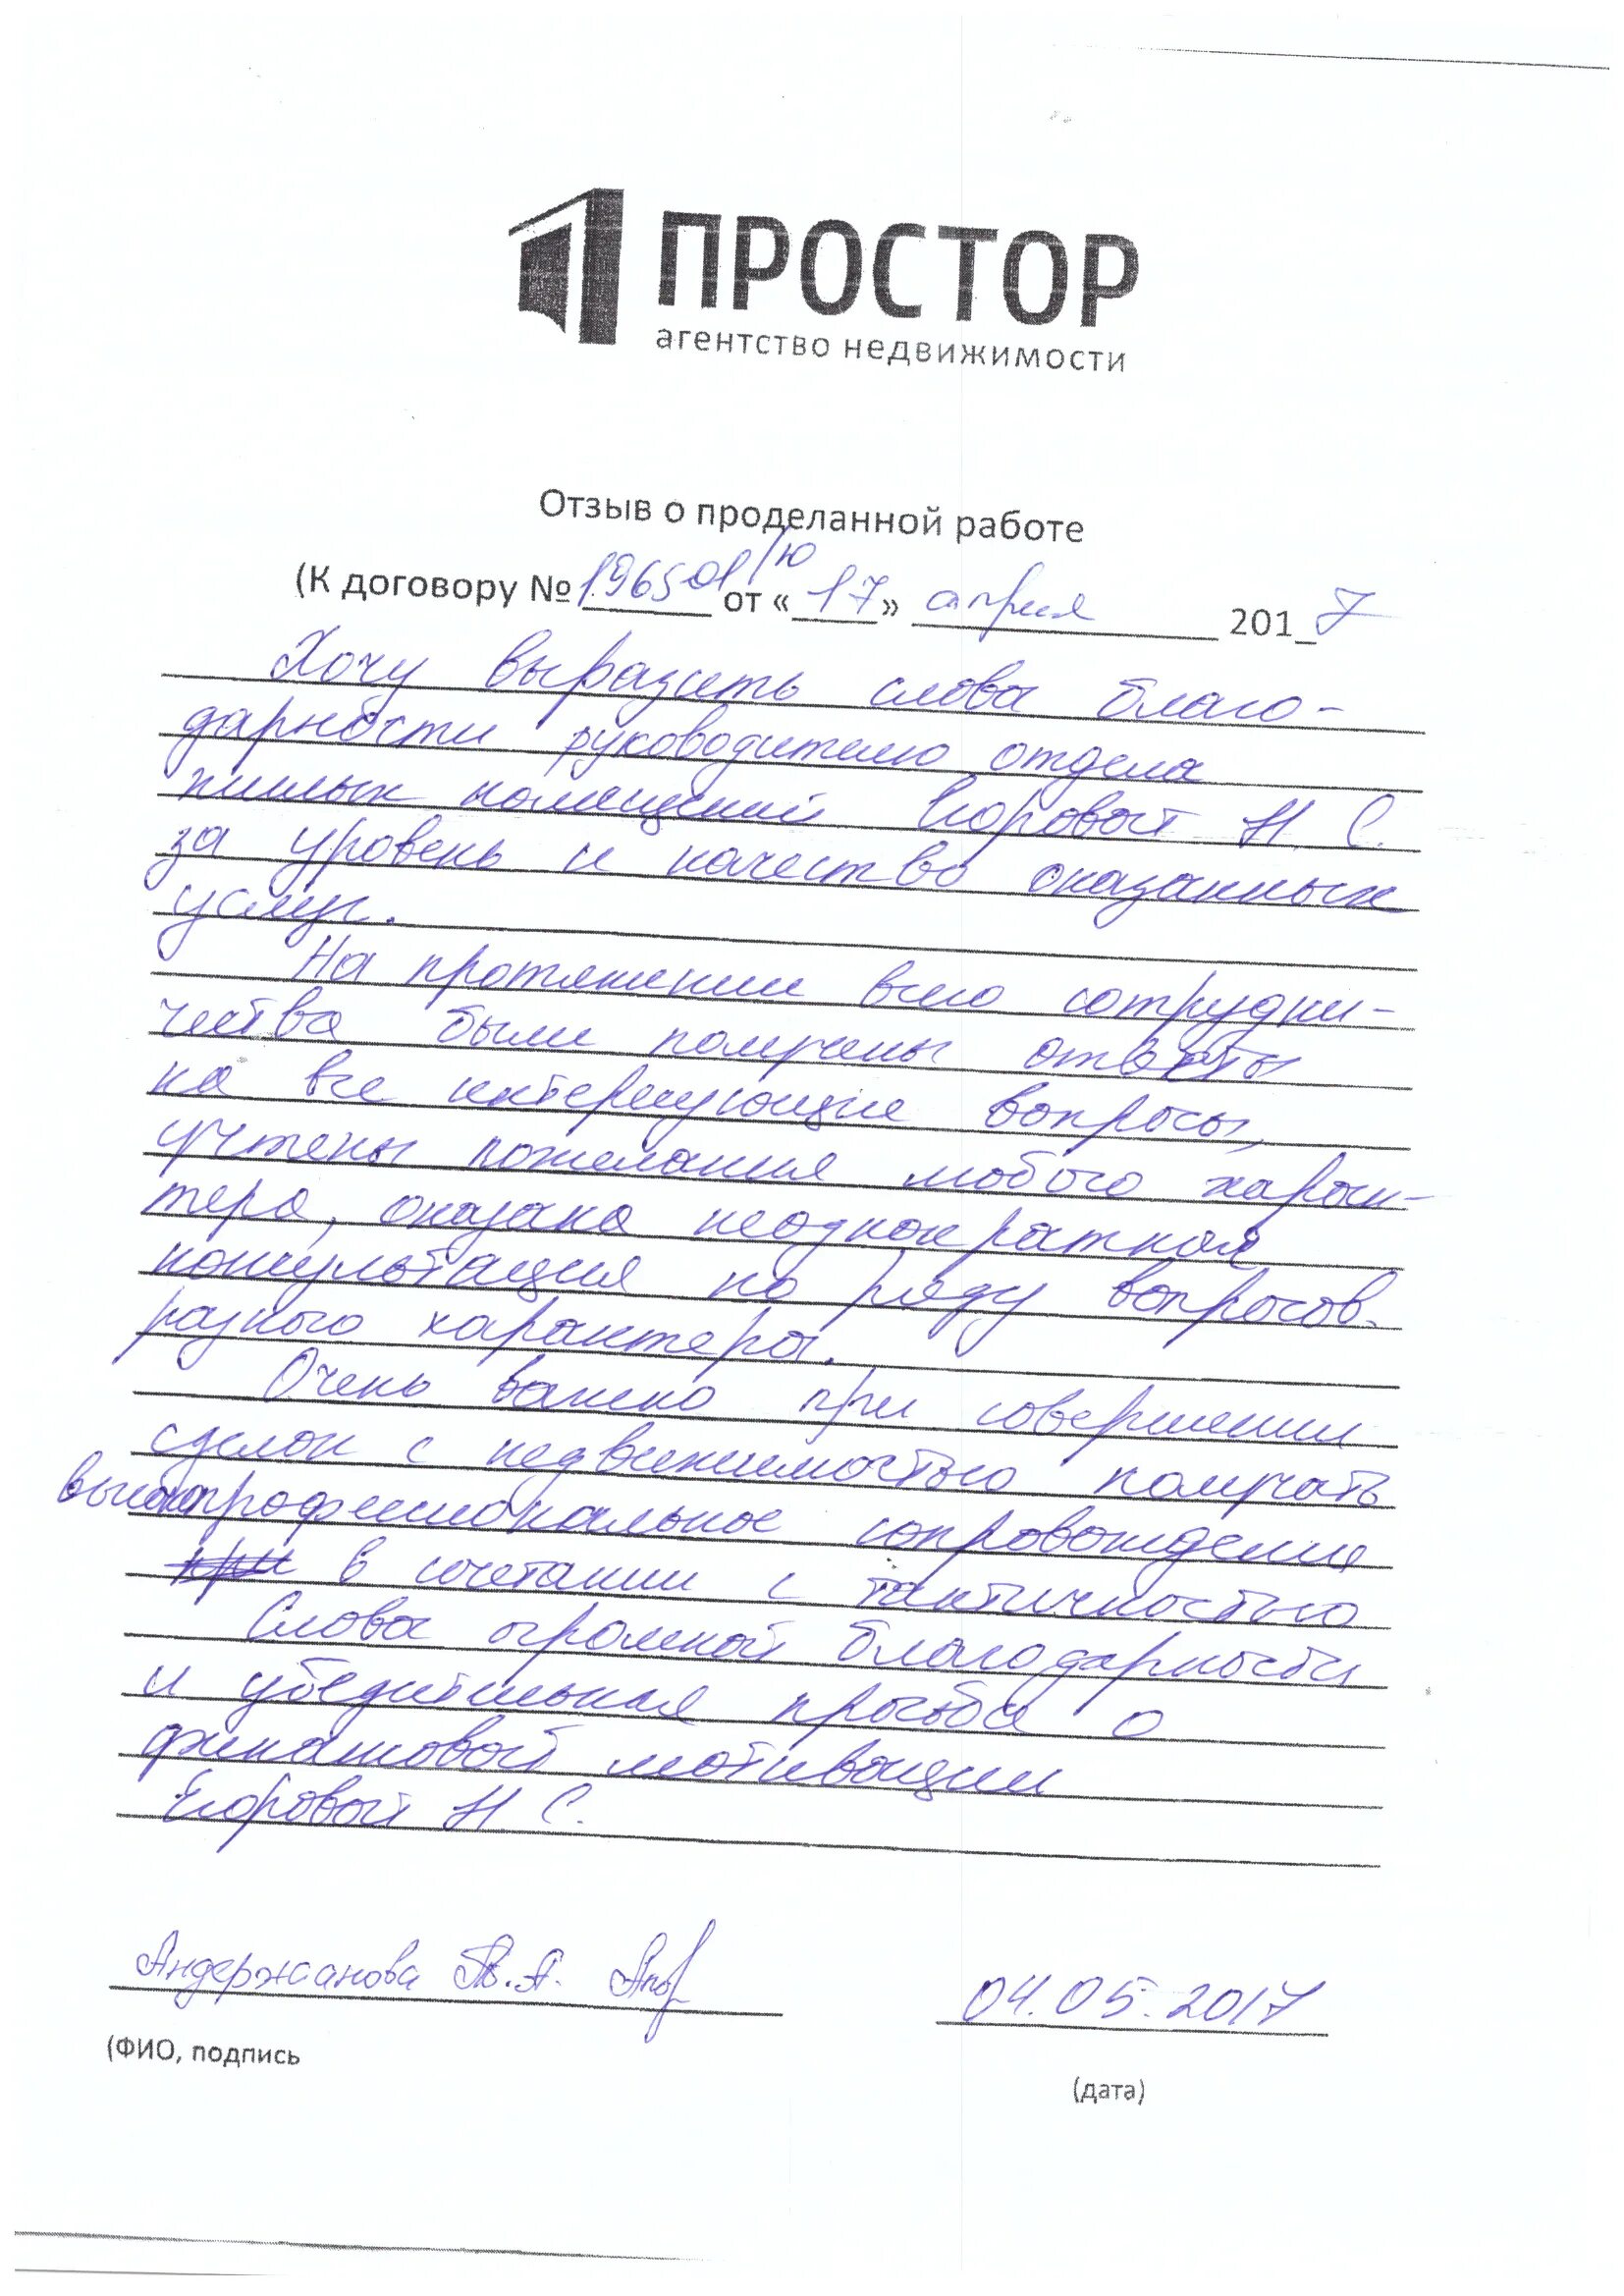 ПРОСТОР
агентство недвижимости
Отзыв о проделанной работе
(К договору № 196501/ю от «17» апреля 2017
Хочу выразить слова благо-
дарности руководителю отдела
жилых помещений Егоровой Н. С.
за уровень и качество оказанных
услуг.
На протяжении всего сотрудни-
чества были получены ответы
на все интересующие вопросы,
учтены пожелания любого харак-
тера, оказана неоднократная
консультация по ряду вопросов
разного характера.
Очень важно при совершении
сделок с недвижимостью получать
высокопрофессиональное сопровождение
в сочетании с тактичностью
Слова огромной благодарности
и убедительная просьба о
финансовой мотивации
Егоровой Н. С.
Андержанова А.
04.05.2017
(ФИО, подпись
(дата)